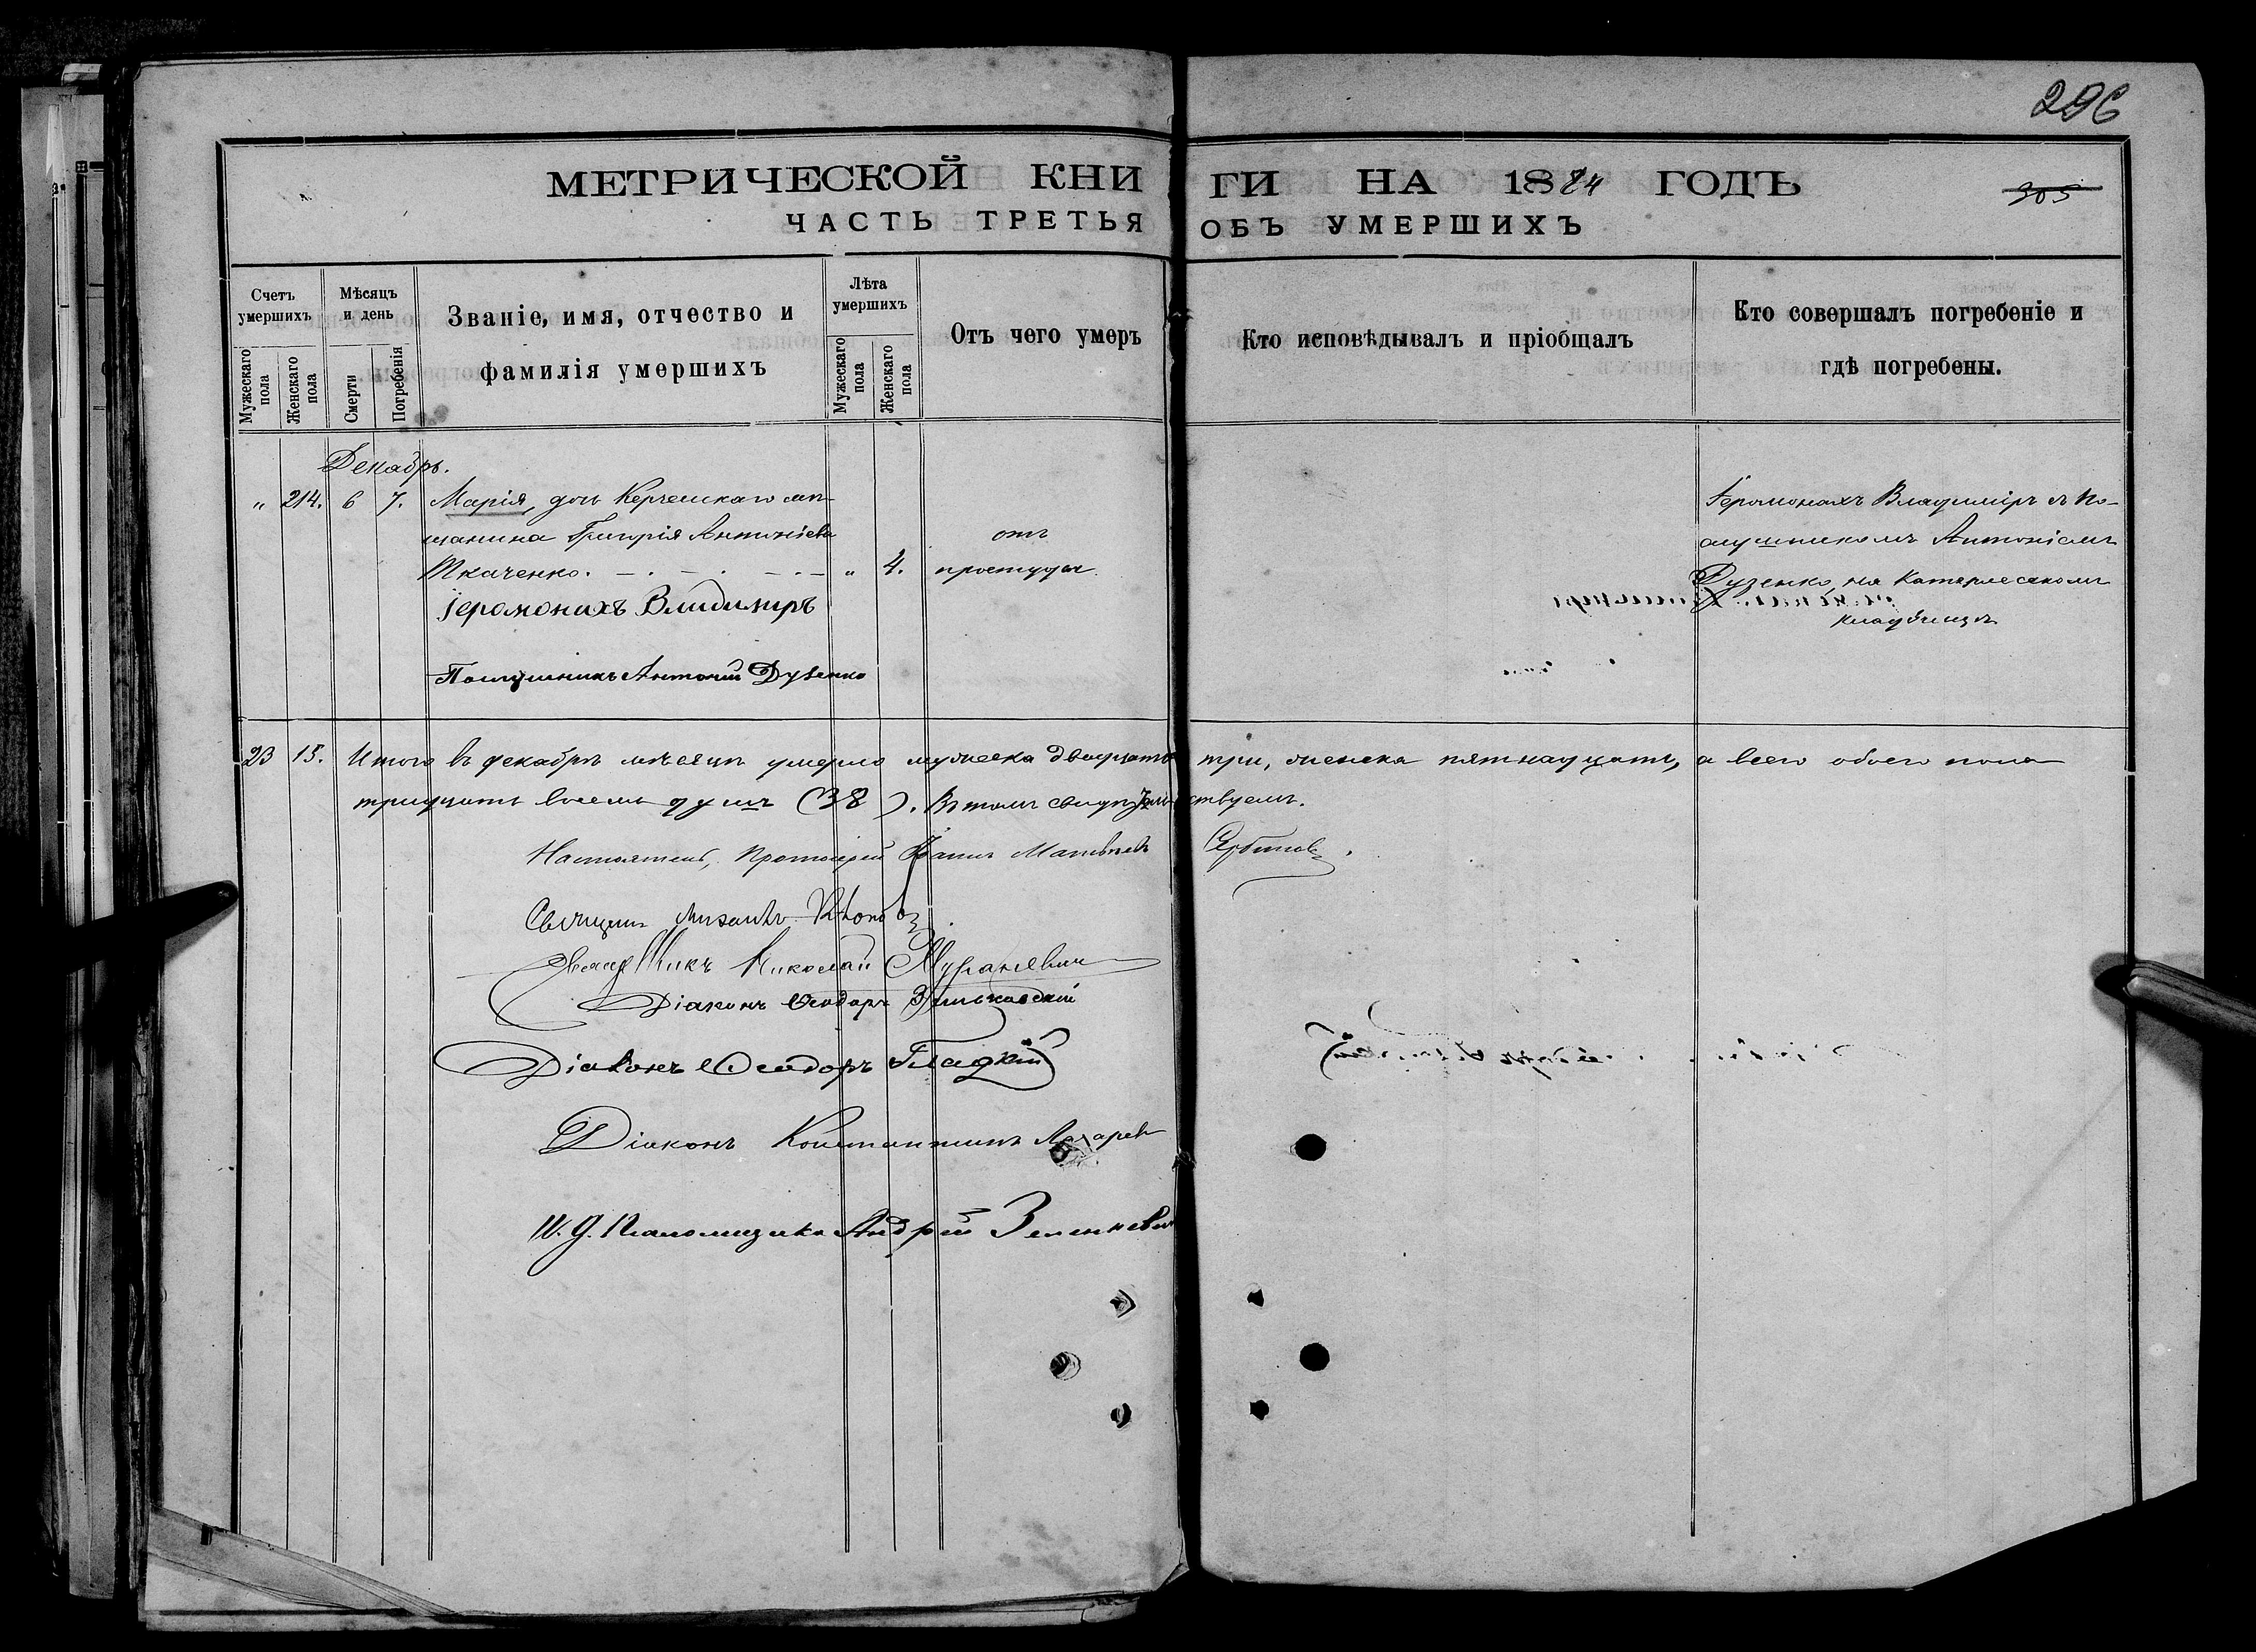 296
МЕТРИЧЕСКОЙ КНИГИ НА 1884 ГОДЪ
305
ЧАСТЬ ТРЕТЬЯ ОБЪ УМЕРШИХЪ
Счетъ умершихъ
Мужескаго пола
Женскаго пола
Мѣсяцъ и день
Смерти
Погребенія
Званіе, имя, отчество и
фамилія умершихъ
Лѣта умершихъ
Мужескаго пола
Женскаго пола
Отъ чего умеръ
Кто исповѣдывалъ и пріобщалъ
Кто совершалъ погребеніе и
гдѣ погребены.
Декабрь.
" 214. 6 7. Марія, дочь Керченскаго мѣ-
щанина Григорія Антоніева
Ткаченко. " 4.
отъ
простуды.
Іеромонахъ Владиміръ съ по-
слушникомъ Антоніемъ
Дузенко, на Катерлесскомъ
кладбищѣ
Іеромонахъ Владимиръ
Послушникъ Антоній Дузенко
23 15. Итого въ декабрѣ мѣсяцѣ умерло мужеска двадцать три, женска пятнадцать, а всего обоего пола
тридцать восемь душъ (38). Въ томъ свидѣтельствуемъ.
Настоятель, Протоіерей Іоаннъ Матвѣевъ Сербиновъ.
Священ. Михаилъ
Николай
Діаконъ Ѳеодоръ
Діаконъ Ѳеодоръ Гладкій
Діаконъ Константинъ Лазарев
И. д. Псаломщика Андрей Зеленкевич